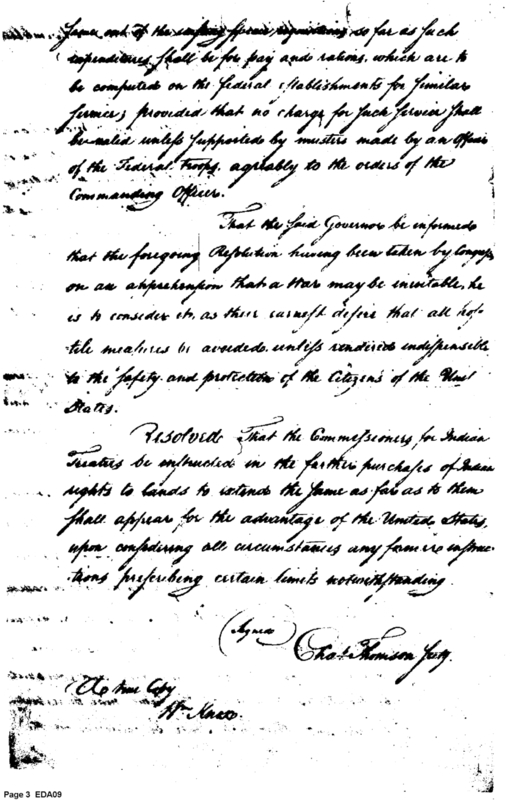 same out of the ensuing specie requisitions so far as such
expenditures shall be for pay and rations, which are to
be computed on the Federal establishments for similar
services; provided that no charge for such service shall
be valid unless supported by musters made by an Officer
of the Federal troops agreably to the orders of the
Commanding Officer.
That the said Governor be informed
that the foregoing Resolution having been taken by Congress
on an apprehension that a War may be inevitable, he
is to consider it, as their earnest desire that all hos-
tile measures be avoided unless rendered indispensible
to the safety and protection of the Citizens of the United
States.
Resolved That the Commissioners for Indian
Treaties be instructed in the farther purchases of Indian
rights to lands to extend the same as far as to them
shall appear for the advantage of the United States,
upon considering all circumstances any former instruc-
tions prescribing certain limits notwithstanding.
(Signed)
Chas. Thomson Secy.
A true Copy
Wm Knox
Page 3 EDA09